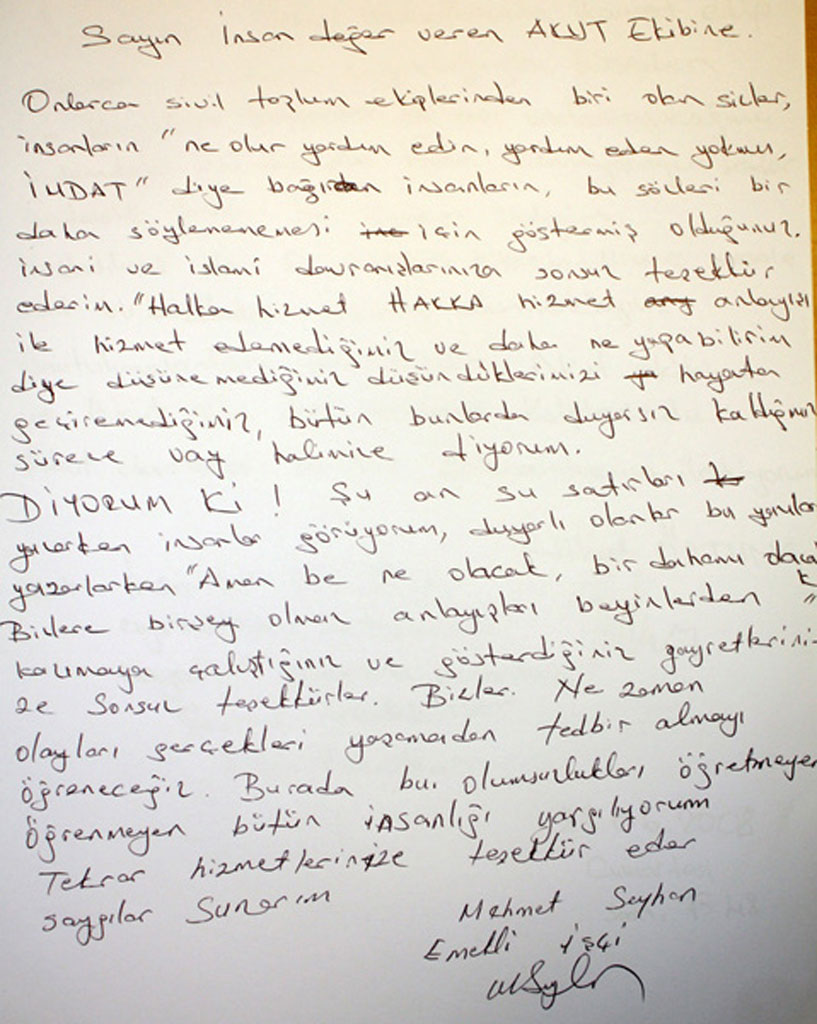 Sayın İnsan değer veren AKUT Ekibine.
Onlarca sivil toplum ekiplerinden biri olan sizler,
insanların "ne olur yardım edin, yardım eden yokmu,
İMDAT" diye bağırdan insanların, bu sözleri bir
daha söylenememesi için göstermiş olduğunuz.
insani ve islamî davranışlarınıza sonsuz teşekkür
ederim. "Halka hizmet HAKKA hizmet anlayışı
ile hizmet edemediğimiz ve daha ne yapabilirim
diye düşünemediğimiz düşündüklerimizi hayata
geçiremediğimiz, bütün bunlarda duyarsız kaldığımız
sürece vay halimize diyorum.
DİYORUM Ki! Şu an şu satırları
yazarken insanlar görüyorum, duyarlı olanlar bu yazıları
yazarlarken "Aman be ne olacak, bir dahamı olacak
Bizlere birşey olmaz anlayışları beyinlerden "
kazımaya çalıştığınız ve gösterdiğiniz gayretlerini-
ze Sonsuz teşekkürler. Bizler. Ne zaman
olayları gerçekleri yaşamadan tedbir almayı
öğreneceğiz. Burada bu olumsuzlukları öğretmeyen
öğrenmeyen bütün insanlığı yargılıyorum
Tekrar hizmetlerinize teşekkür eder
saygılar Sunarım
Mehmet Seyhan
Emekli işçi